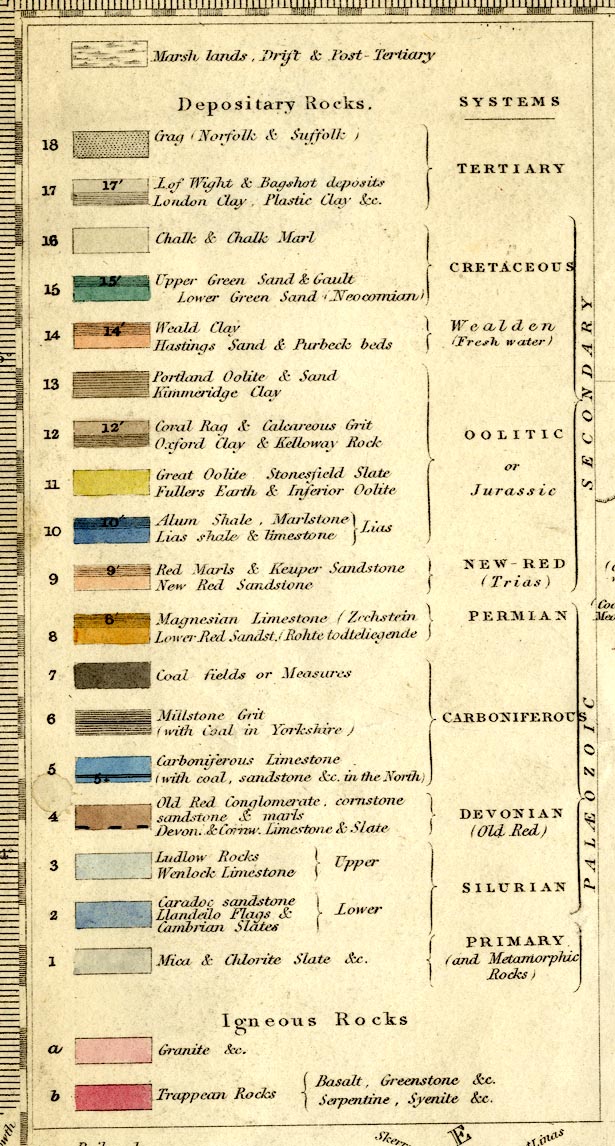 Marsh lands, Drift & Post-Tertiary
Depositary Rocks.
SYSTEMS
18 Crag (Norfolk & Suffolk)
TERTIARY
17 17' I. of Wight & Bagshot deposits
London Clay, Plastic Clay &c.
16 Chalk & Chalk Marl
CRETACEOUS
15 15' Upper Green Sand & Gault
Lower Green Sand (Neocomian)
14 14' Weald Clay
Hastings Sand & Purbeck beds
Wealden
(Fresh water)
SECONDARY
13 Portland Oolite & Sand
Kimmeridge Clay
12 12' Coral Rag & Calcareous Grit
Oxford Clay & Kelloway Rock
OOLITIC
or
Jurassic
11 Great Oolite Stonesfield Slate
Fullers Earth & Inferior Oolite
10 10' Alum Shale, Marlstone
Lias shale & limestone
Lias
9 9' Red Marls & Keuper Sandstone
New Red Sandstone
NEW-RED
(Trias)
8 8' Magnesian Limestone (Zechstein
Lower Red Sandst. (Rohte todteliegende
PERMIAN
7 Coal fields or Measures
6 Millstone Grit
(with Coal in Yorkshire)
CARBONIFEROUS
5 Carboniferous Limestone
5* (with coal, sandstone &c. in the North)
PALÆOZOIC
4 Old Red Conglomerate, cornstone
sandstone & marls
Devon. & Cornw. Limestone & Slate
DEVONIAN
(Old Red)
3 Ludlow Rocks
Wenlock Limestone
Upper
SILURIAN
2 Caradoc sandstone
Llandeilo Flags &
Cambrian Slates
Lower
1 Mica & Chlorite Slate &c.
PRIMARY
(and Metamorphic
Rocks)
Igneous Rocks
a Granite &c.
b Trappean Rocks
Basalt, Greenstone &c.
Serpentine, Syenite &c.